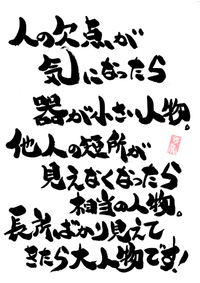 人の欠点が
気になったら
器が小さい人物。
他人の短所が
見えなくなったら
相当の人物。
長所ばかり見えて
きたら大人物です!